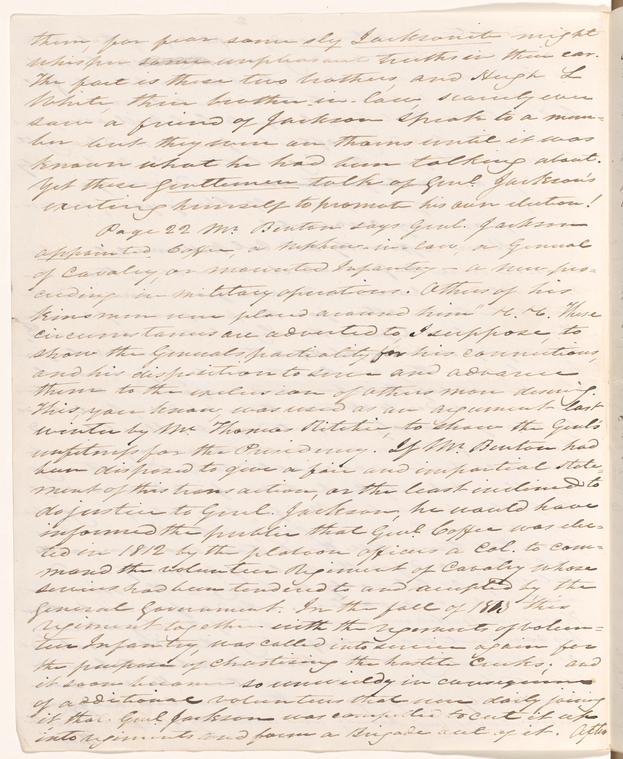 them, for fear some sly Jacksonite might
whisper some unpleasant truths in their ear.
The fact is these two brothers, and Hugh L
White, their brother in-law, scarcely ever
saw a friend of Jackson speak to a mem-
ber but they were on thorns until it was
known what he had been talking about.
Yet these gentlemen talk of Genl. Jackson's
exerting himself to promote his own election!
Page 22 Mr. Benton says Genl. Jackson
appointed Coffee, a nephew-in-law, a General
of Cavalry, or mounted Infantry - a new pro-
ceeding in military operations. Others of his
kinsmen were placed around him" &. &. These
circumstances are adverted to, I suppose, to
show the Generals partiality for his connections,
and his disposition to serve and advance
them to the exclusion of others more deserving.
This, you know, was used as an argument last
winter by Mr. Thomas Ritchie, to show the Genl's
unfitness for the Presidency. If Mr. Benton had
been disposed to give a fair and impartial state-
ment of this transaction, or the least inclined to
do justice to Genl. Jackson, he would have
informed the public that Genl. Coffee was elec-
ted in 1812 by the platoon officers a Col. to com-
mand the volunteer Regiment of Cavalry whose
services had been tendered to and accepted by the
General Government. In the fall of 1813 this
regiment together with the regiments of volun-
teer Infantry, was called into service again for
the purpose of chastising the hostile Creeks: and
it soon became so unwieldy in consequence
of additional volunteers that were daily joining
it that Genl Jackson was compelled to cut it up
into regiments and form a Brigade out of it. After